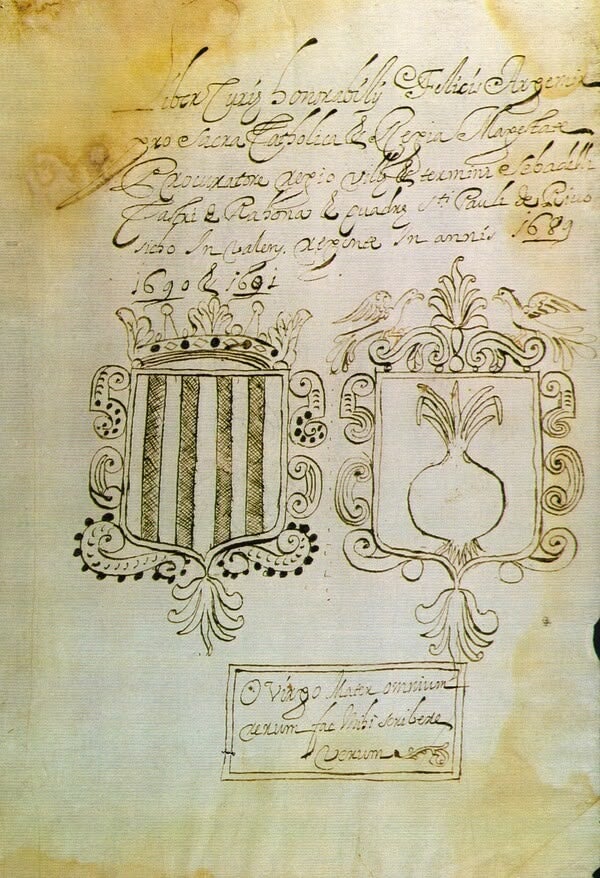 Liber Curiæ honorabilis Felicis Argemir
pro Sacra Catholica & Regia Magestate
Procuratore regio villæ & termini Sabadelli
& Rahona & quadræ Sti Pauli de Rivo
sicho In Valens. regente In annis 1689
1690 & 1691
O Virgo Mater omnium
rerum fac Mihi scribere
Verum